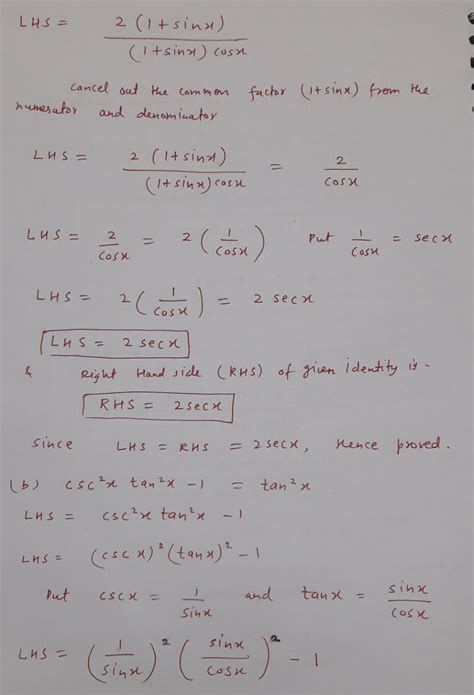 LHS = 2 (1+sinx) / (1+sinx) cosx
Cancel out the common factor (1+sinx) from the
numerator and denominator
LHS = 2 (1+sinx) / (1+sinx) cosx = 2 / cosx
LHS = 2 / cosx = 2 (1 / cosx) Put 1 / cosx = secx
LHS = 2 (1 / cosx) = 2 secx
LHS = 2 secx
& Right Hand side (RHS) of given identity is -
RHS = 2secx
Since LHS = RHS = 2secx, Hence proved.
(b) csc²x tan²x - 1 = tan²x
LHS = csc²x tan²x - 1
LHS = (cscx)² (tanx)² - 1
Put cscx = 1 / sinx and tanx = sinx / cosx
LHS = (1 / sinx)² (sinx / cosx)² - 1